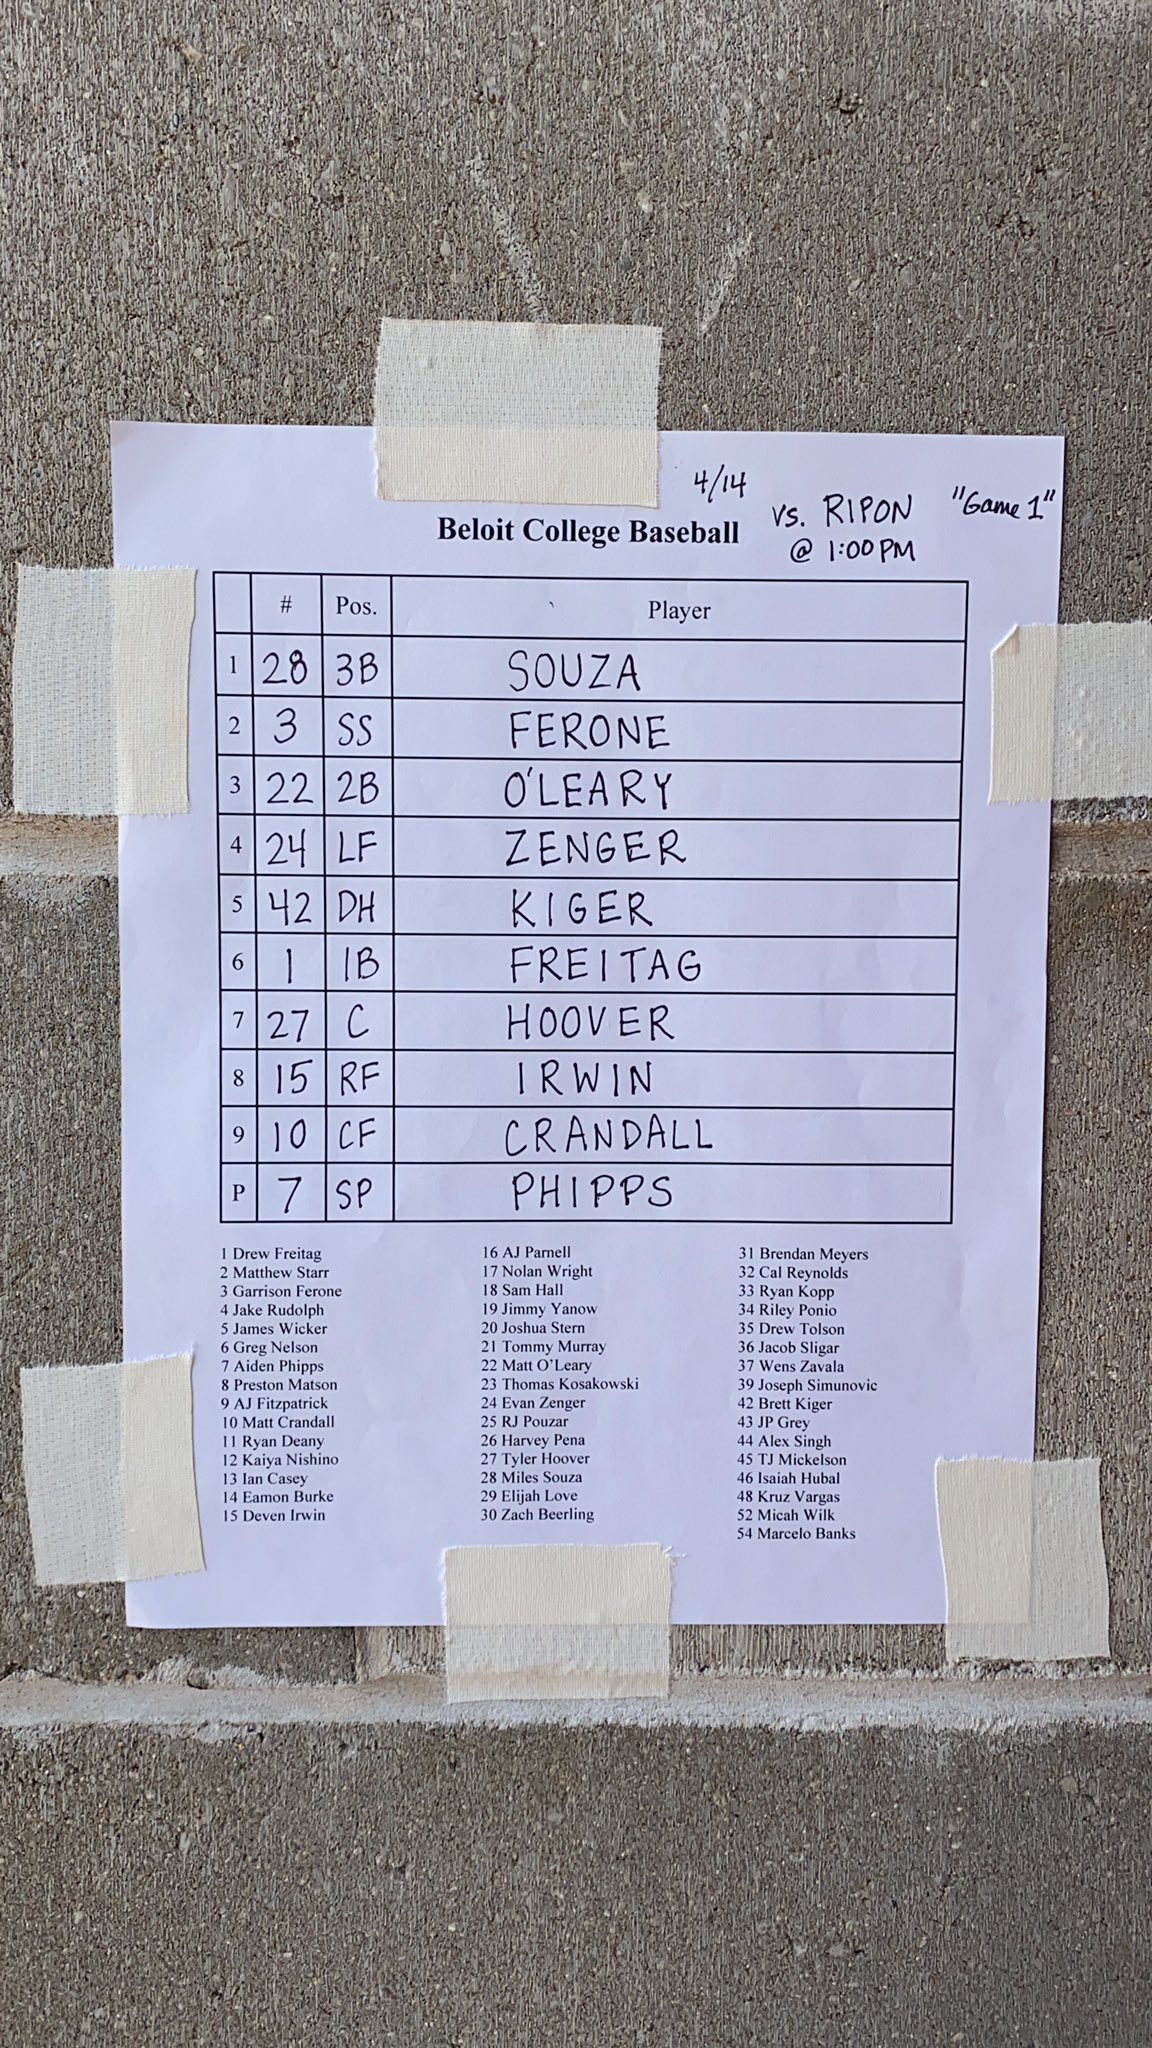 4/14
Beloit College Baseball vs. RIPON "Game 1"
@ 1:00 PM
# Pos. Player
1 28 3B SOUZA
2 3 SS FERONE
3 22 2B O'LEARY
4 24 LF ZENGER
5 42 DH KIGER
6 1 1B FREITAG
7 27 C HOOVER
8 15 RF IRWIN
9 10 CF CRANDALL
P 7 SP PHIPPS
1 Drew Freitag
2 Matthew Starr
3 Garrison Ferone
4 Jake Rudolph
5 James Wicker
6 Greg Nelson
7 Aiden Phipps
8 Preston Matson
9 AJ Fitzpatrick
10 Matt Crandall
11 Ryan Deany
12 Kaiya Nishino
13 Ian Casey
14 Eamon Burke
15 Deven Irwin
16 AJ Parnell
17 Nolan Wright
18 Sam Hall
19 Jimmy Yanow
20 Joshua Stern
21 Tommy Murray
22 Matt O'Leary
23 Thomas Kosakowski
24 Evan Zenger
25 RJ Pouzar
26 Harvey Pena
27 Tyler Hoover
28 Miles Souza
29 Elijah Love
30 Zach Beerling
31 Brendan Meyers
32 Cal Reynolds
33 Ryan Kopp
34 Riley Ponio
35 Drew Tolson
36 Jacob Sligar
37 Wens Zavala
39 Joseph Simunovic
42 Brett Kiger
43 JP Grey
44 Alex Singh
45 TJ Mickelson
46 Isaiah Hubal
48 Kruz Vargas
52 Micah Wilk
54 Marcelo Banks